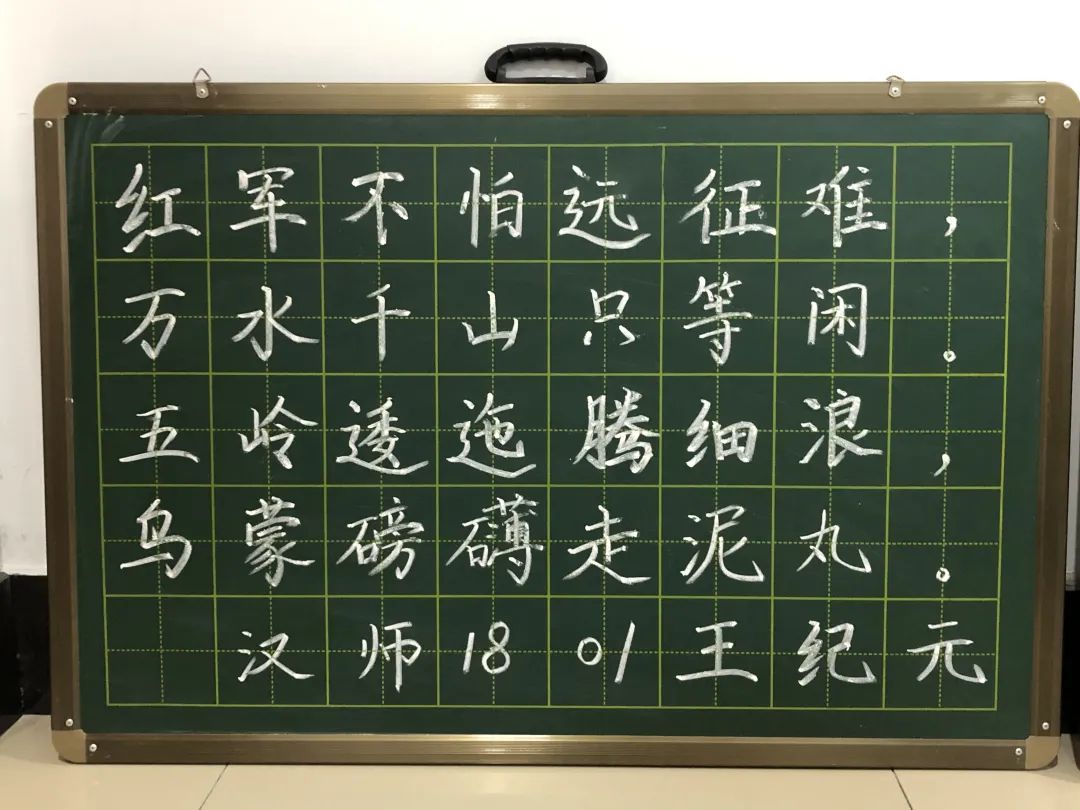 红军不怕远征难，
万水千山只等闲。
五岭逶迤腾细浪，
鸟蒙磅礴走泥丸。
汉师1801王纪元